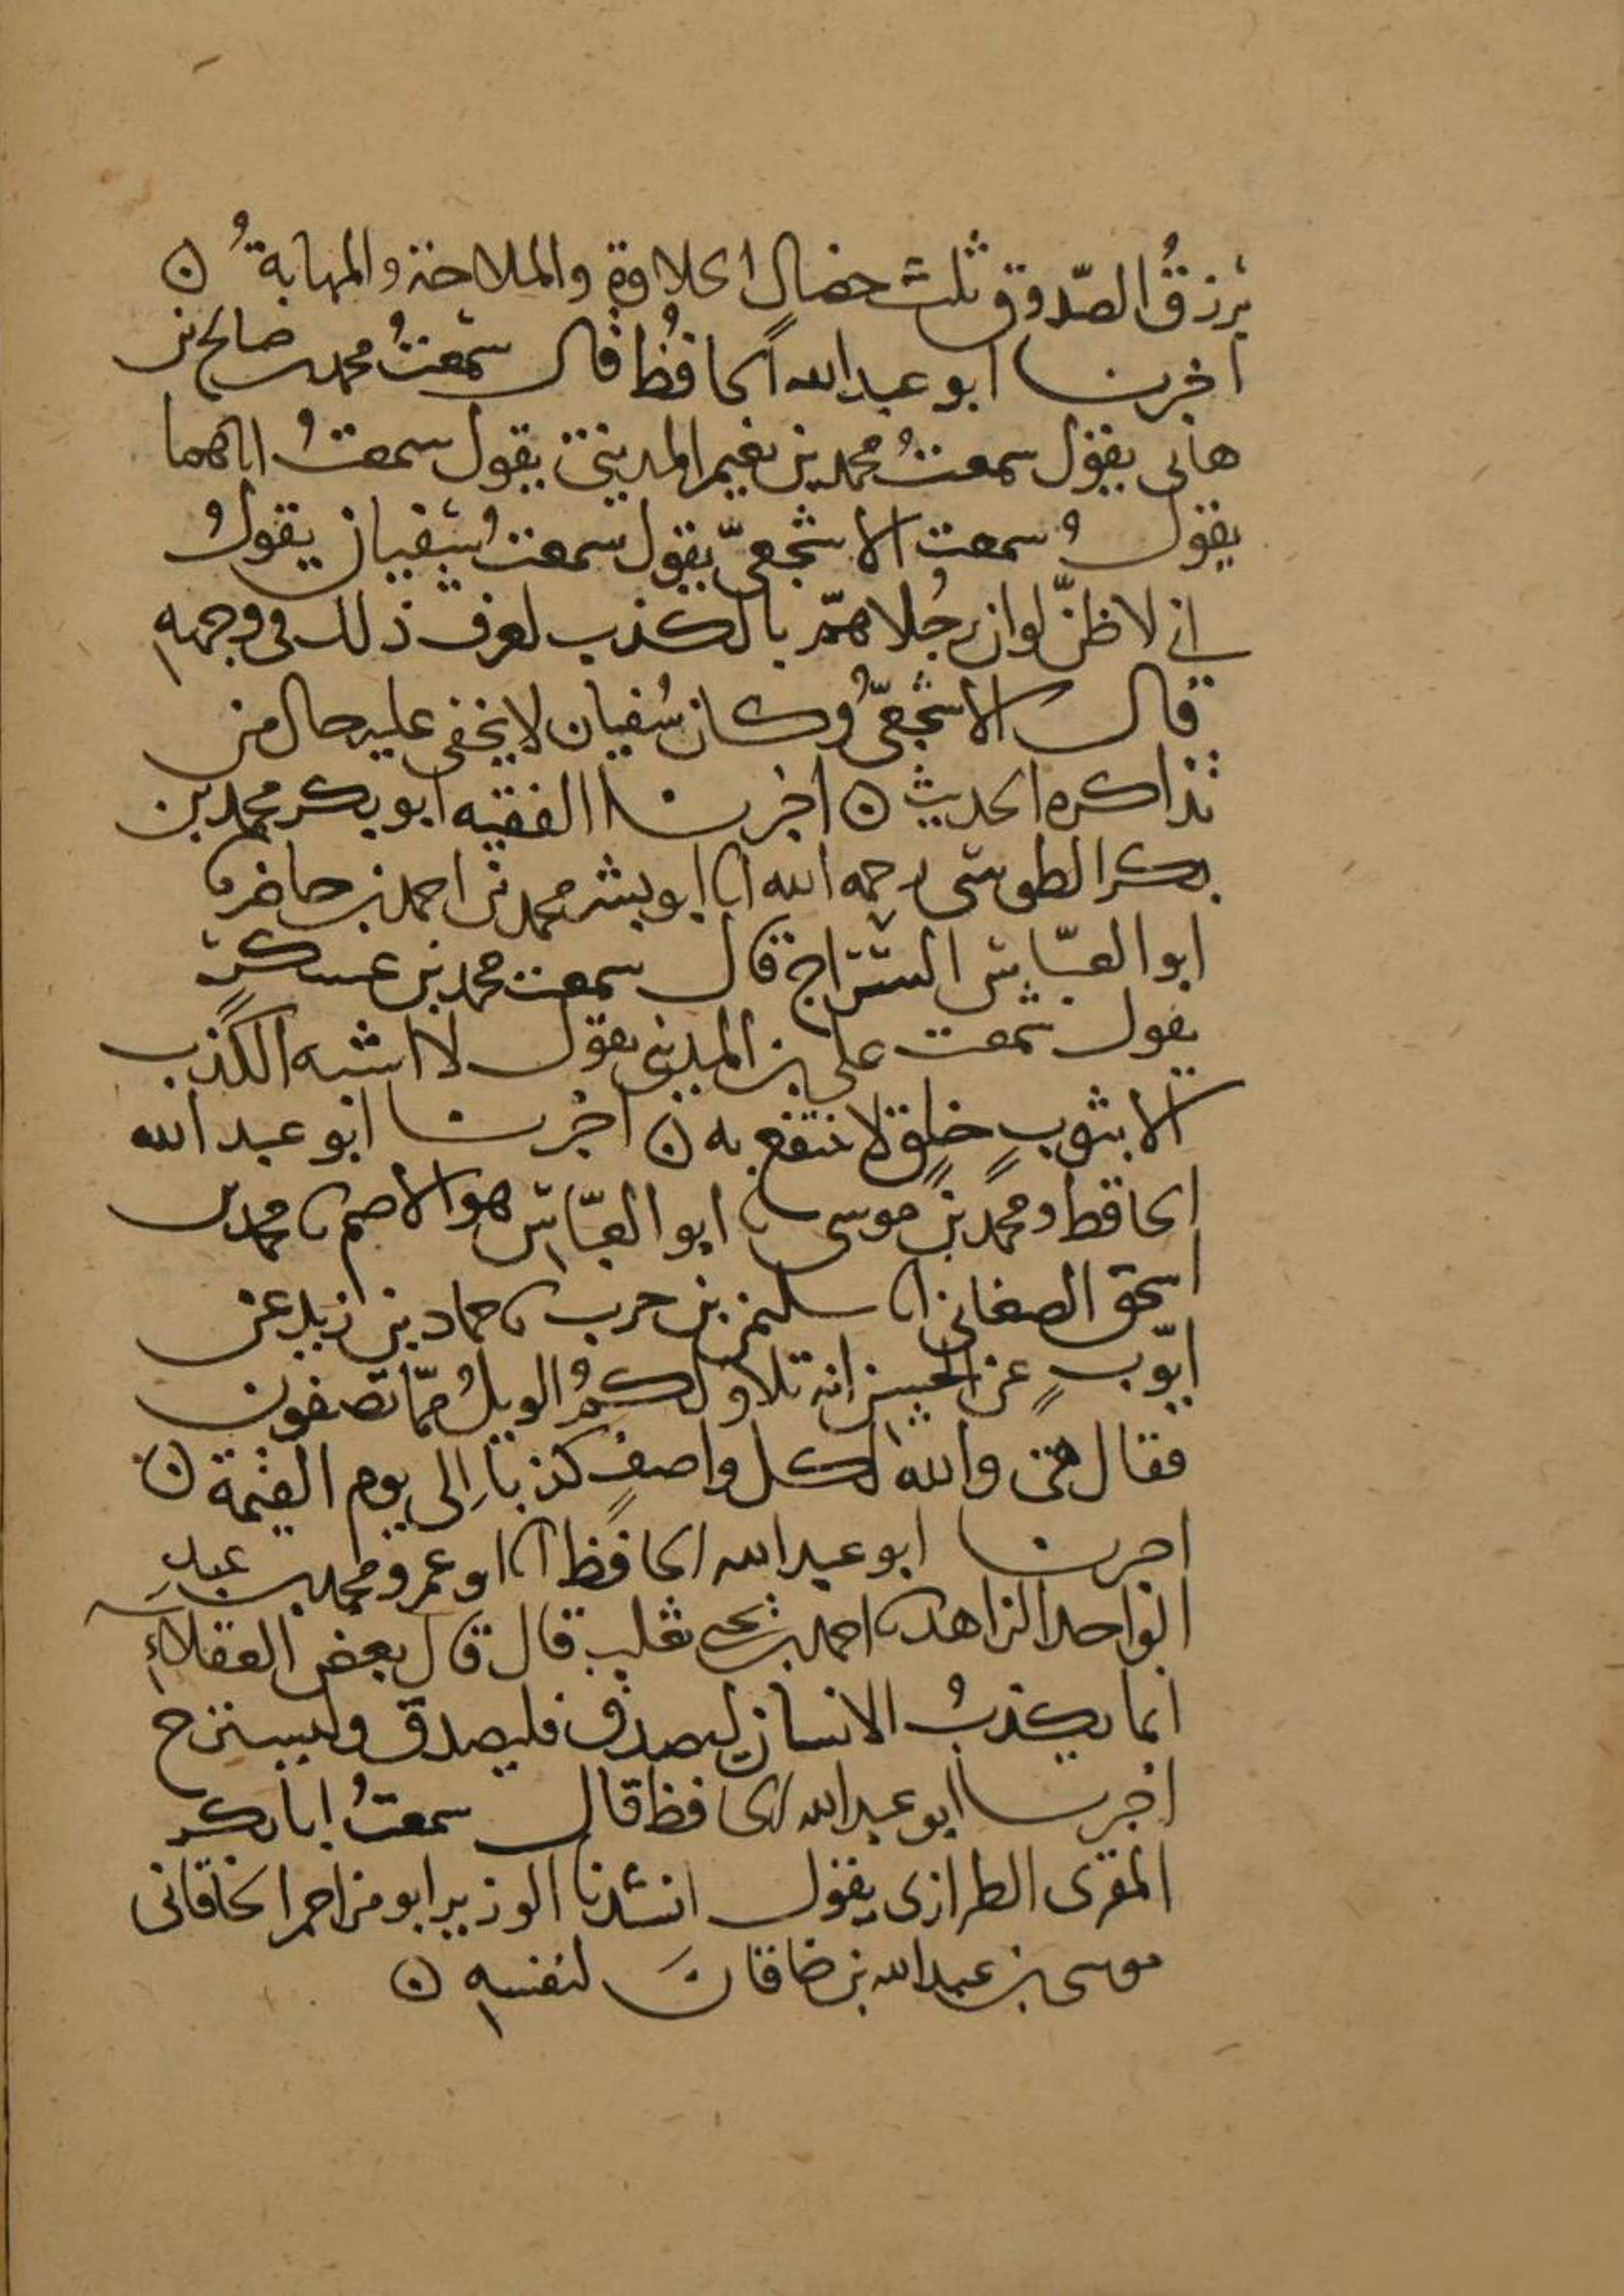 يُرزقُ الصّدوق ثلث خصال الحلاوة والملاحة والمهابةُ ن
اخبرنا ابو عبدالله الحافظُ قال سمعتُ محمد بن صالح بن
هانى يقول سمعتُ محمد بن نعيم المديني يقول سمعتُ اباهما
يقول سمعت الاشجعيّ يقول سمعتُ سفيان يقول
اني لاظنّ لو ان رجُلا همّ بالكذب لعرف ذلك فى وجهه
قال الاشجعيُّ وكان سُفيان لا يخفى عليه حال من
تذاكره الحديث ن اخبرنا الفقيه ابو بكر محمد بن
بكر الطوسى رحمه الله انا ابو بشر محمد بن احمد بن حاضر نا
ابو العبّاس السّرّاج قال سمعت محمد بن عسكر
يقول سمعت على بن المديني يقول لا اشبه الكذب
الا بثوبٍ خلِقٍ لا ننتفع به ن اخبرنا ابو عبد الله
الحافظ ومحمد بن موسى نا ابو العبّاس هو الاصم نا محمد بن
اسحق الصغاني انا سليمن بن حرب نا حماد بن زيد عن
ايّوبٍ عن الحسن انه تلا ولكمُ الويلُ ممّا تصفون
فقال هى والله لكل واصفٍ كذبا الى يوم القيمة ن
اخبرنا ابو عبدالله الحافظ انا ابو عمرو محمد بن عبدِ
الواحد الزاهد نا احمد بن يحيى ثعلب قال قال بعض العقلاءِ
انما يكذبُ الانسان ليصدق فليصدق وليسترح
اخبرنا ابو عبدالله الحافظ قال سمعتُ ابا بكر
المقرى الطرازى يقول انشدنا الوزير ابو مزاحم الخاقانى
موسى بن عبدالله بن خاقانَ لنفسه ن